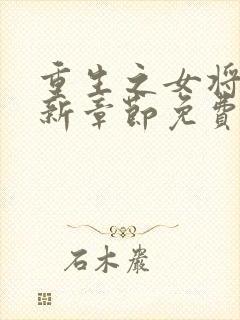 重生之女将
新章節免費
石木巖